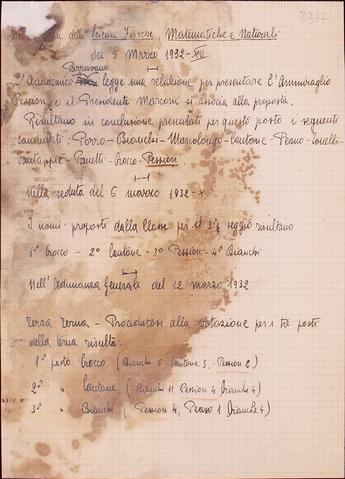 3317
delle Scienze Fisiche, Matematiche e Naturali
del 5 Marzo 1932-XIII
Parravano
L'Accademico legge una relazione per presentare l'Ammiraglio
Pession, e il Presidente Marconi si associa alla proposta.
Risultano in conclusione presentati per questo posto i seguenti
candidati: Porro - Bianchi - Marolongo - Cantone - Peano - Tonelli -
Vanetti - Crocco - Pession
Nella seduta del 6 marzo 1932-X
I nomi proposti dalla Classe per il 3° seggio risultano
1° Crocco - 2° Cantone - 3° Pession - 4° Bianchi
Nell'Adunanza generale del 12 marzo 1932
Terza Terna - Procedutosi alla votazione per i tre posti
della terna risulta:
1° posto Crocco (Bianchi 5 Cantone 3, Pession 2)
2° " Cantone (Bianchi 11 Pession 4 bianche 4)
3° " Bianchi (Pession 4, Peano 1 bianche 4)